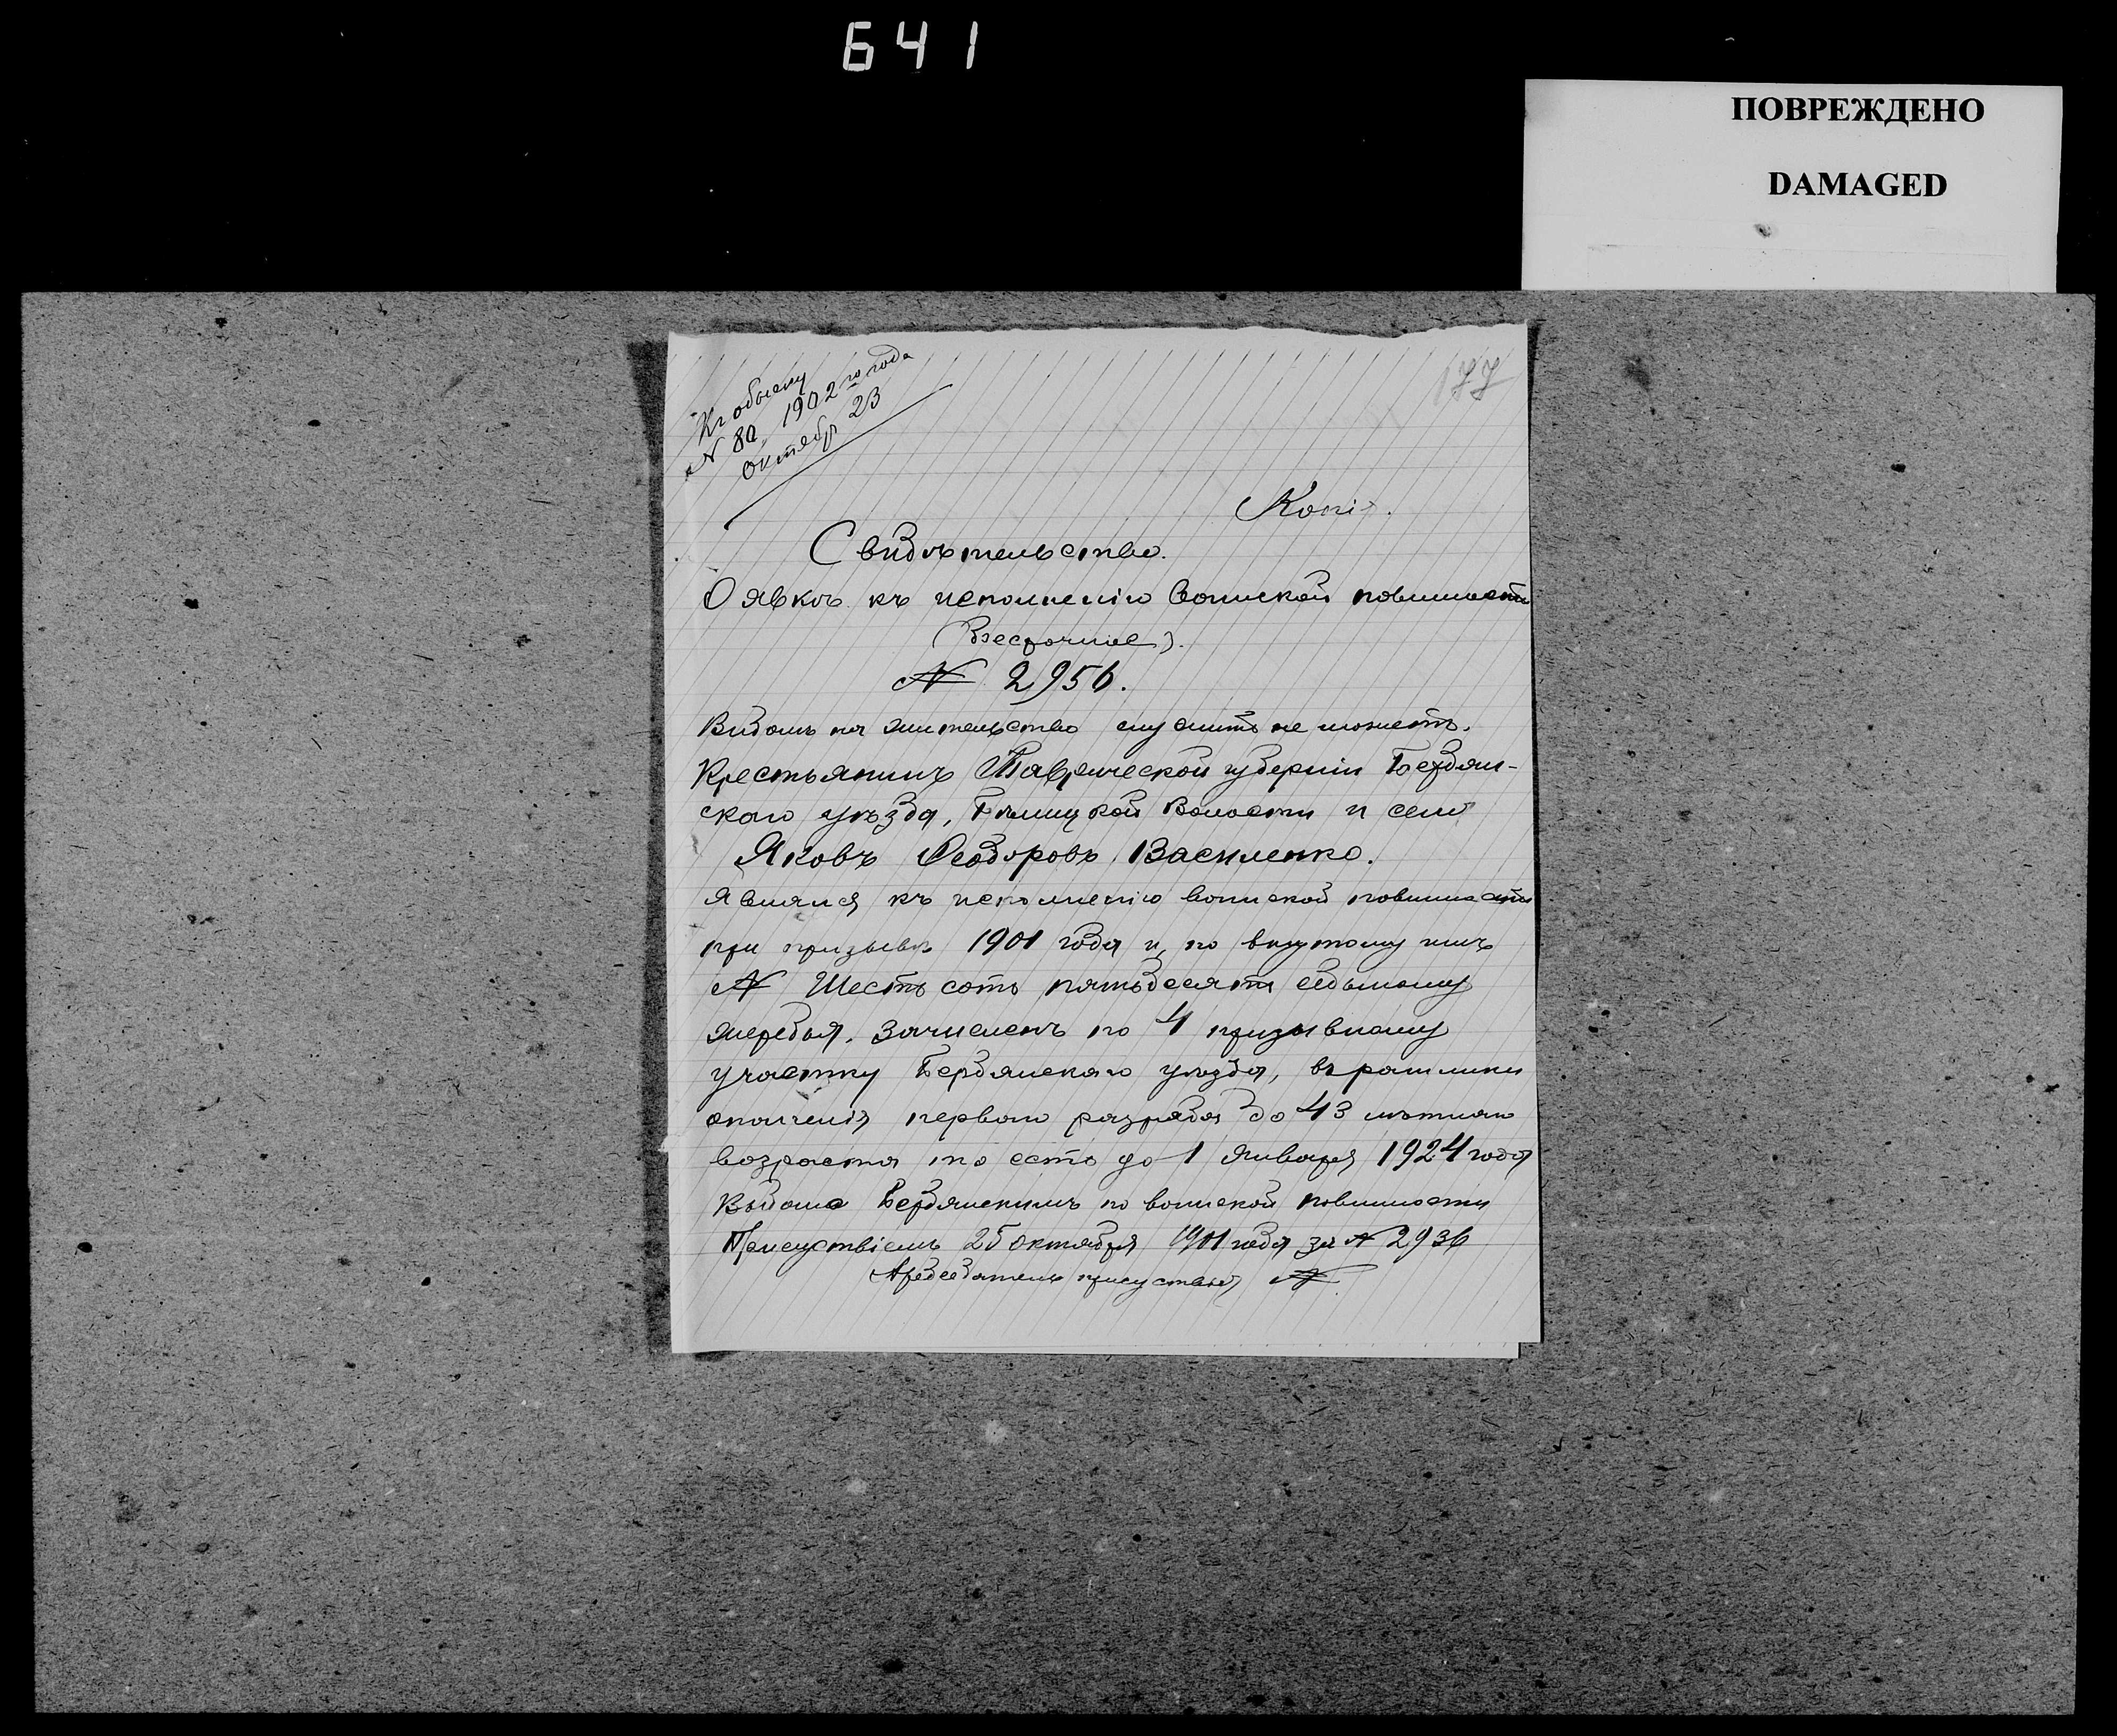 641
ПОВРЕЖДЕНО
DAMAGED
177
Къ обыску
№ 80. 1902 го года
Октябр 23
Копія.
Свидѣтельство.
О явкѣ къ исполненію Воинской повинности
(Безсрочное).
№ 2956.
Видомъ на жительство служить не можетъ.
Крестьянинъ Таврической губерніи Бердян-
скаго уѣзда, Волости и села
Яковъ Феодоровъ Василенко.
Явился къ исполненію воинской повинности
при призывѣ 1901 года и, по вынутому имъ
№ Шесть сотъ пятьдесятъ седьмому
жеребья, зачисленъ по 4 призывному
участку Бердянскаго уѣзда, въ ратники
ополченія перваго разряда до 43 лѣтняго
возраста то есть до 1 Января 1924 года
Выдано Бердянскимъ по воинской повинности
Присутствіемъ 25 октября 1901 года за № 2936
Председатель присутствія